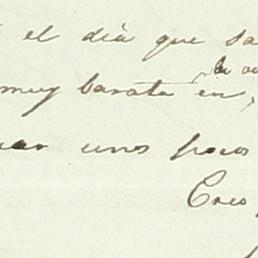 el dia que sa
la
muy barata en,
uar unos pocos
Creo